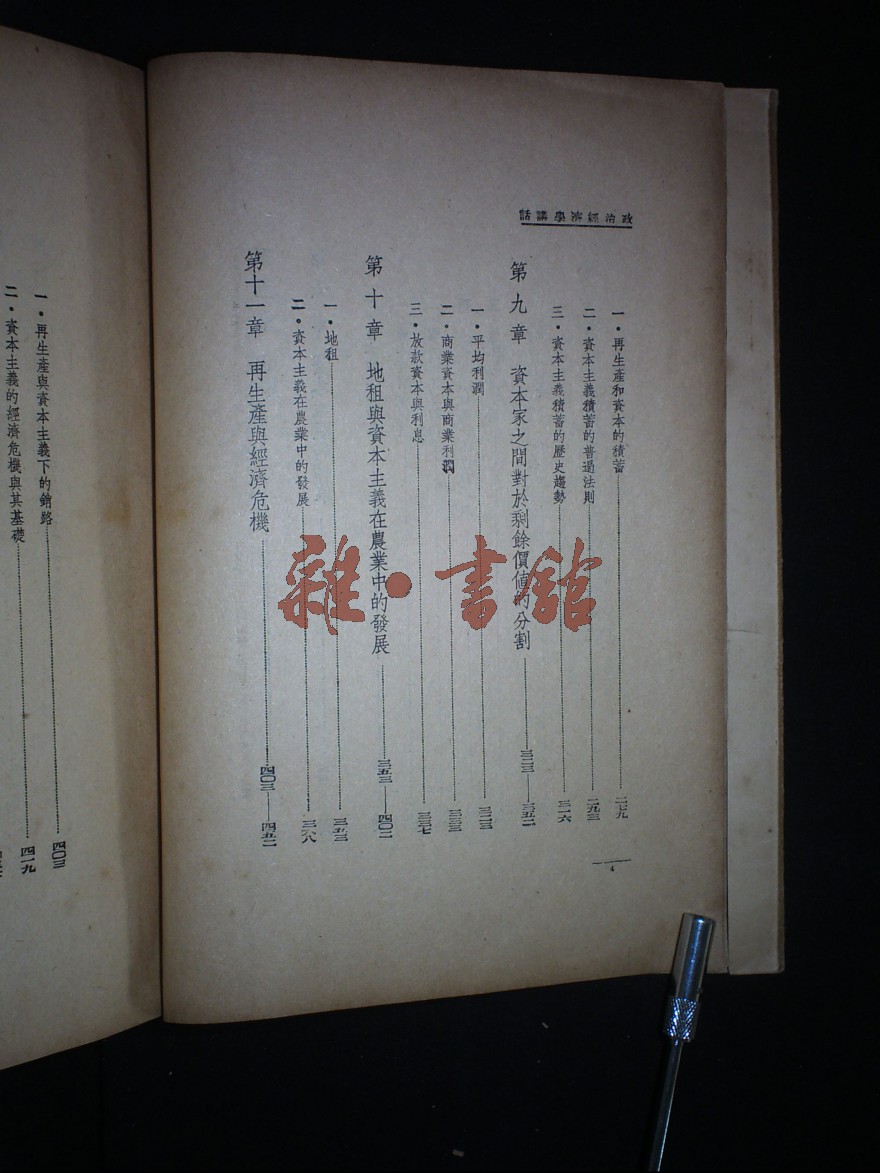 政治經濟學講話
一・再生產和資本的積蓄……二七九
二・資本主義積蓄的普遍法則……二九三
三・資本主義積蓄的歷史趨勢……三一六
第九章 資本家之間對於剩餘價值的分割……三二三——三五二
一・平均利潤……三二三
二・商業資本與商業利潤……三三三
三・放款資本與利息……三三七
第十章 地租與資本主義在農業中的發展……三五三——四〇二
一・地租……三五三
二・資本主義在農業中的發展……三六八
第十一章 再生產與經濟危機……四〇三——四五二
一・再生產與資本主義下的銷路……四〇三
二・資本主義的經濟危機與其基礎……四一九
雜・書館